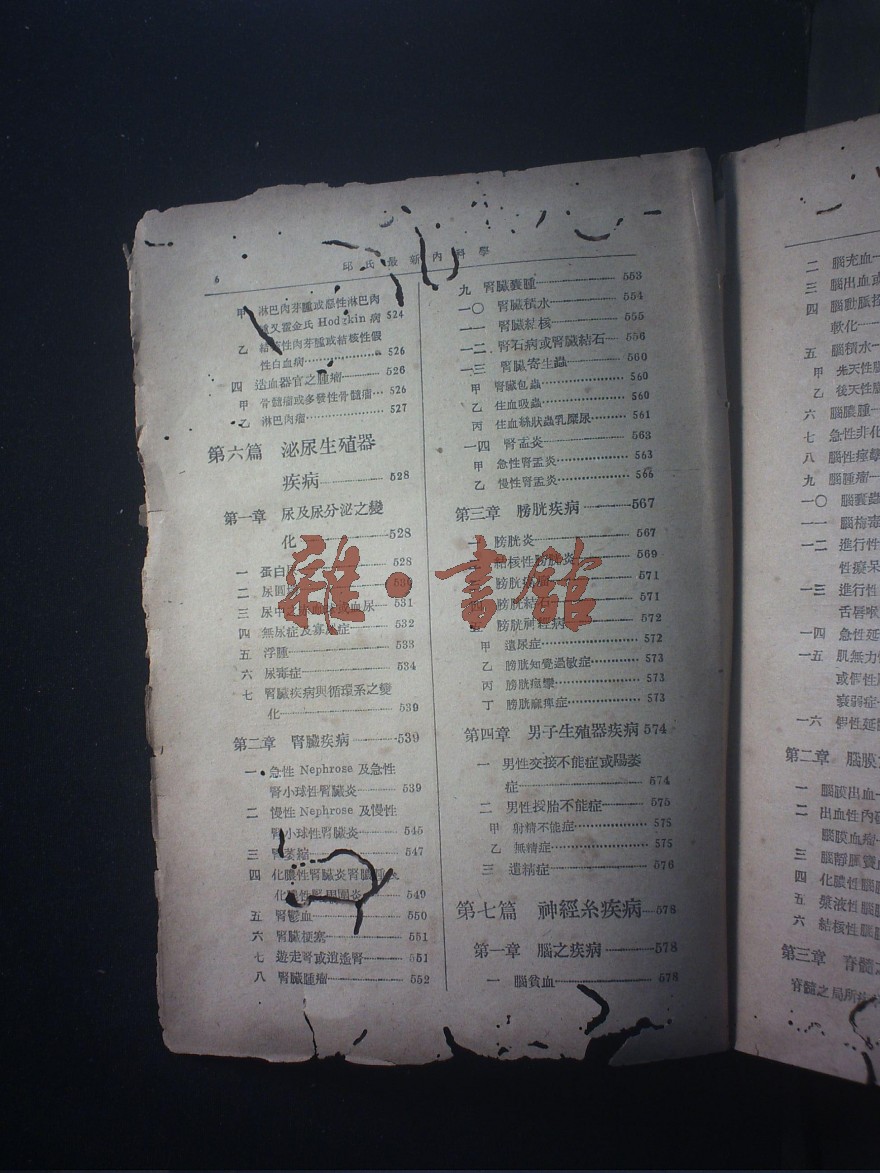 6
邱氏最新內科學
甲 淋巴肉芽腫或惡性淋巴肉
又霍金氏 Hodgkin 病 524
乙 結核性肉芽腫或結核性假
性白血病 526
四 造血器官之腫瘤 526
甲 骨髓瘤或多發性骨髓瘤 526
乙 淋巴肉瘤 527
第六篇 泌尿生殖器
疾病 528
第一章 尿及尿分泌之變
化 528
一 蛋白 528
二 尿圓
三 尿中之 血尿 531
四 無尿症及寡尿症 532
五 浮腫 533
六 尿毒症 534
七 腎臟疾病與循環系之變
化 539
第二章 腎臟疾病 539
一 急性 Nephrose 及急性
腎小球性腎臟炎 539
二 慢性 Nephrose 及慢性
腎小球性腎臟炎 545
三 腎萎縮 547
四 化膿性腎臟炎腎臟
化膿性腎周圍炎 549
五 腎鬱血 550
六 腎臟梗塞 551
七 遊走腎或逍遙腎 551
八 腎臟腫瘤 552
九 腎臟囊腫 553
一〇 腎臟積水 554
一一 腎臟結核 555
一二 腎石病或腎臟結石 556
一三 腎臟寄生蟲 560
甲 腎臟包蟲 560
乙 住血吸蟲 560
丙 住血絲狀蟲乳糜尿 561
一四 腎盂炎 563
甲 急性腎盂炎 563
乙 慢性腎盂炎 566
第三章 膀胱疾病 567
一 膀胱炎 567
二 結核性膀胱炎 569
膀胱 571
四 膀胱結 571
五 膀胱神經病 572
甲 遺尿症 572
乙 膀胱知覺過敏症 573
丙 膀胱痙攣 573
丁 膀胱麻痺症 573
第四章 男子生殖器疾病 574
一 男性交接不能症或陽萎
症 574
二 男性授胎不能症 575
甲 射精不能症 575
乙 無精症 575
三 遺精症 576
第七篇 神經系疾病 578
第一章 腦之疾病 578
一 腦貧血 578
雜·書館
二 腦充血
三 腦出血或
四 腦動脈
軟化
五 腦積水
甲 先天性
乙 後天性
六 腦膿腫
七 急性非化
八 腦性痙攣
九 腦腫瘤
一〇 腦囊蟲
一一 腦梅毒
一二 進行性
性癡呆
一三 進行性
舌唇喉
一四 急性延
一五 肌無力性
或假性
衰弱症
一六 假性延
第二章 腦膜
一 腦膜出血
二 出血性內
腦膜血瘤
三 腦靜脈竇
四 化膿性腦
五 漿液性腦
六 結核性腦
第三章 脊髓
脊髓之局所